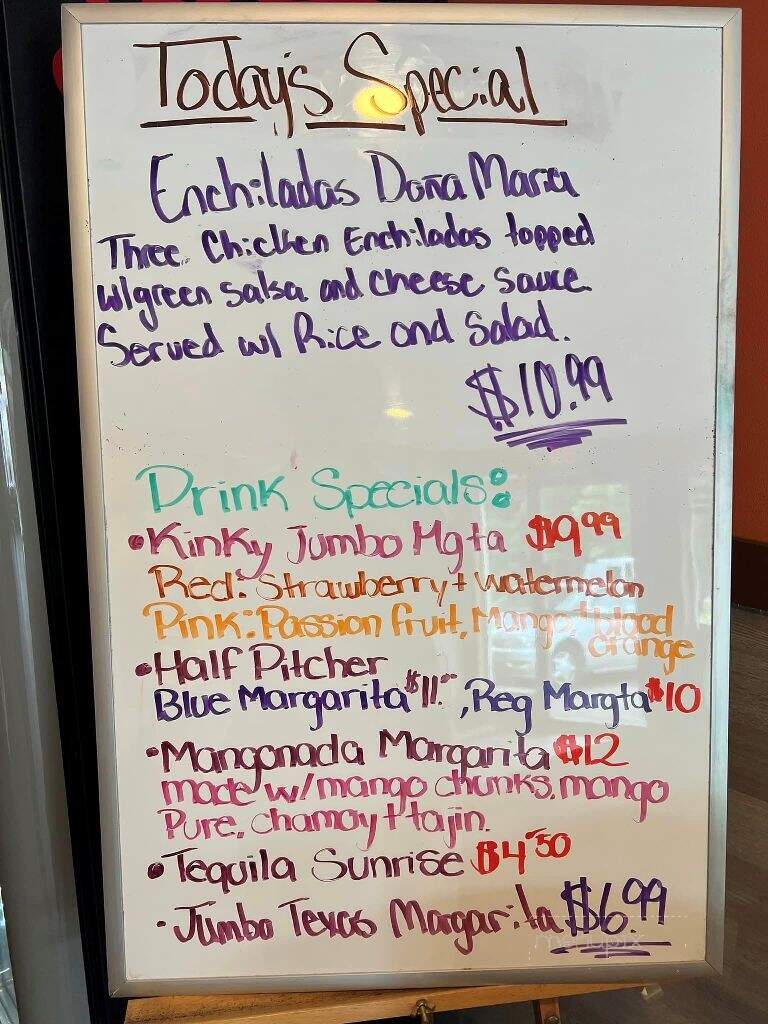 Today's Special
Enchiladas Doña Maria
Three Chicken Enchiladas topped
w/green salsa and cheese sauce.
Served w/ Rice and Salad.
$10.99
Drink Specials:
• Kinky Jumbo Mgta $9.99
Red: Strawberry + watermelon
Pink: Passion fruit, Mango + blood
orange
• Half Pitcher
Blue Margarita $11.00, Reg Margta $10
• Mangonada Margarita $12
made w/ mango chunks, mango
Pure, chamoy + tajin.
• Tequila Sunrise $4.50
• Jumbo Texas Margarita $6.99
menupix